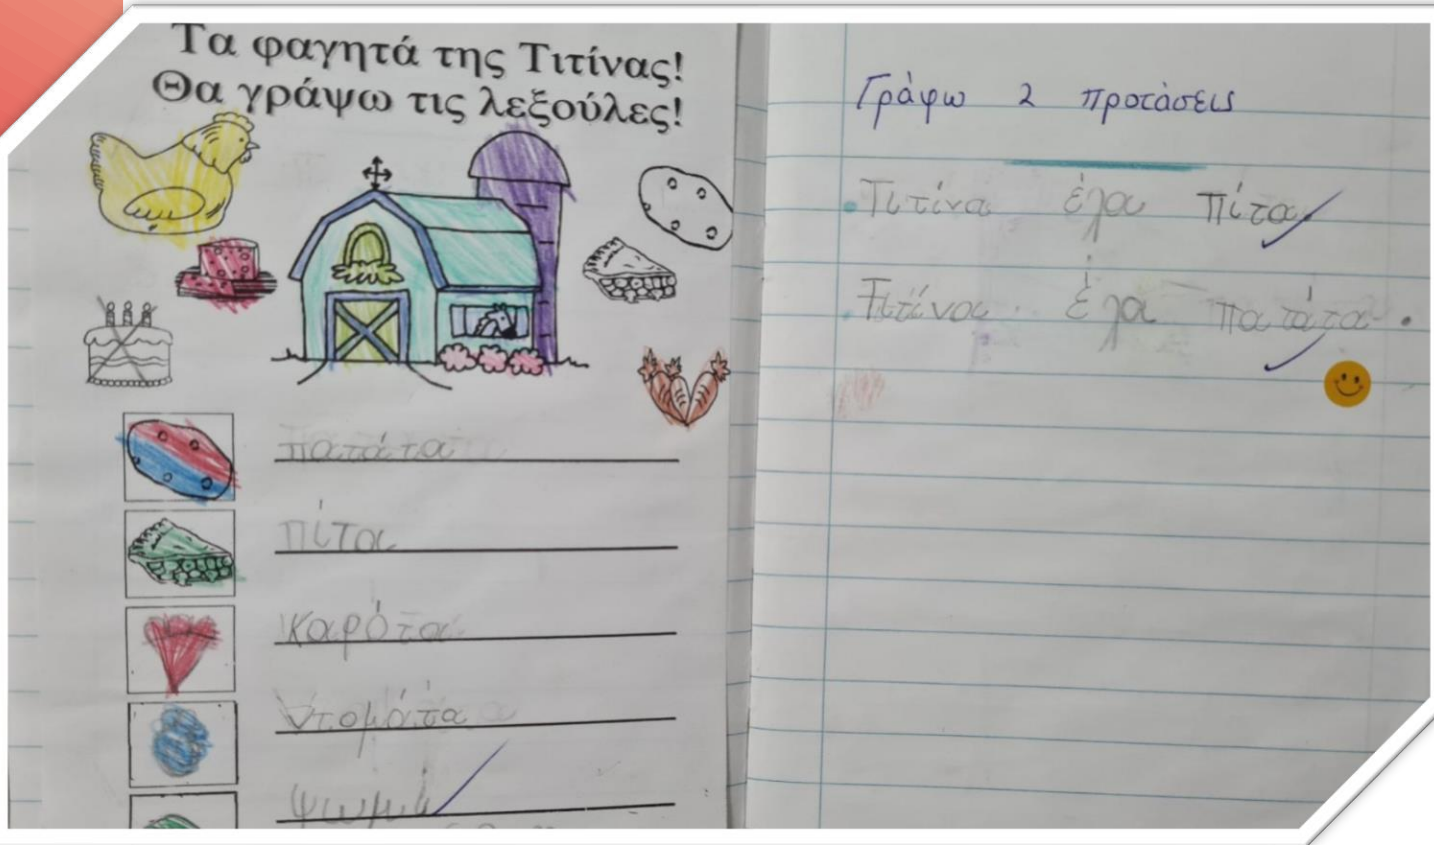 Τα φαγητά της Τιτίνας!
Θα γράψω τις λεξούλες!
πατάτα
πίτα
καρότα
ντομάτα
ψωμί
Γράφω 2 προτάσεις
Τιτίνα έλα πίτα
Τιτίνα έλα πατάτα.